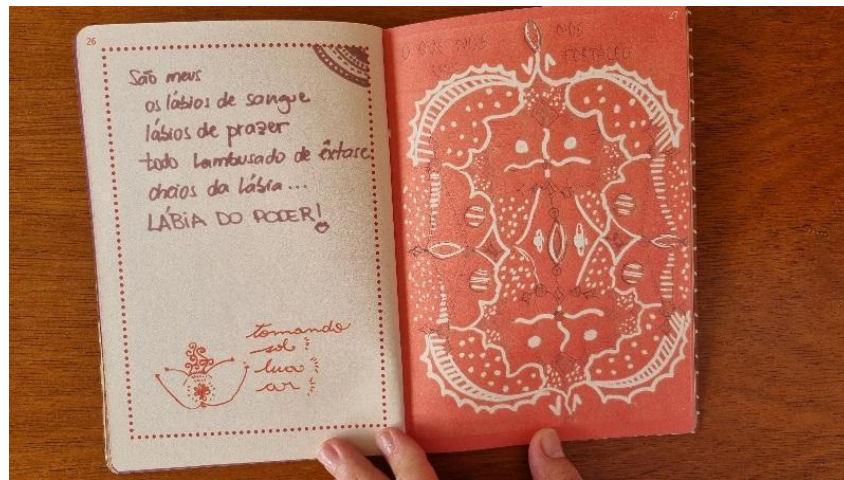 26
São meus
os lábios de sangue
lábios de prazer
todo lambusado de êxtase
cheios da lábia...
LÁBIA DO PODER!
tomando
sol
lua
ar
27